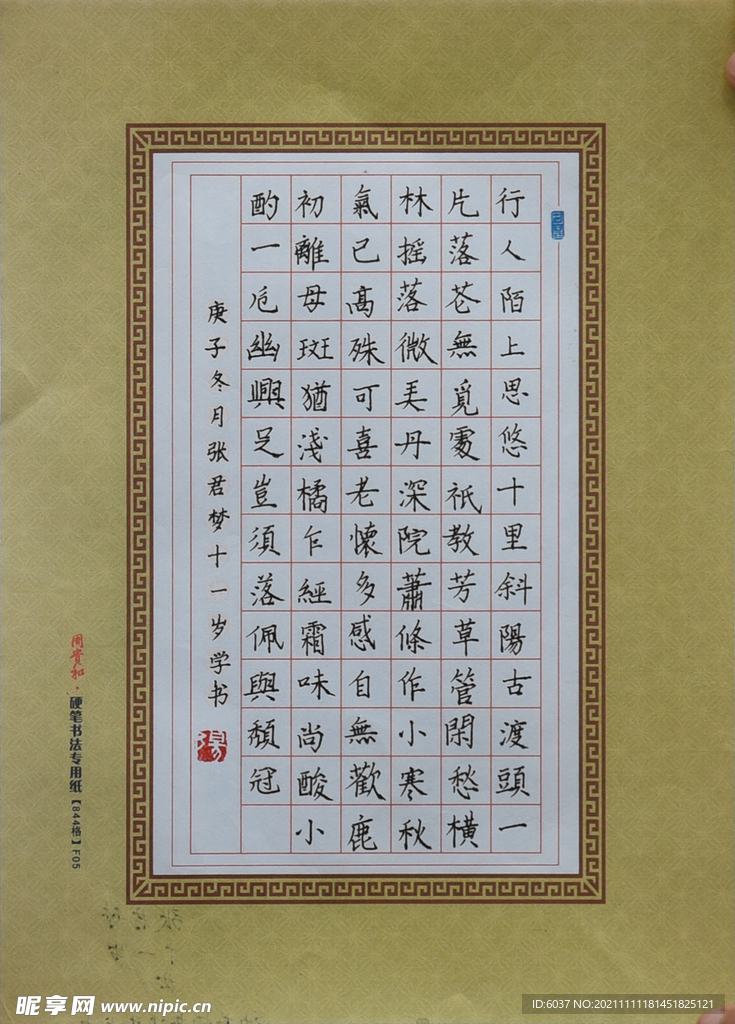 行人陌上思悠十里斜陽古渡頭一
片落芲無覓處祇教芳草管閑愁橫
林摇落微弄丹深院蕭條作小寒秋
氣已高殊可喜老懷多感自無歡鹿
初離母斑猶淺橘乍經霜味尚酸小
酌一卮幽興足豈須落佩與頹冠
庚子冬月张君梦十一岁学书
周贵和·硬笔书法专用纸【844格】F05
昵享网 www.nipic.cn
ID:6037 NO:20211111181451825121